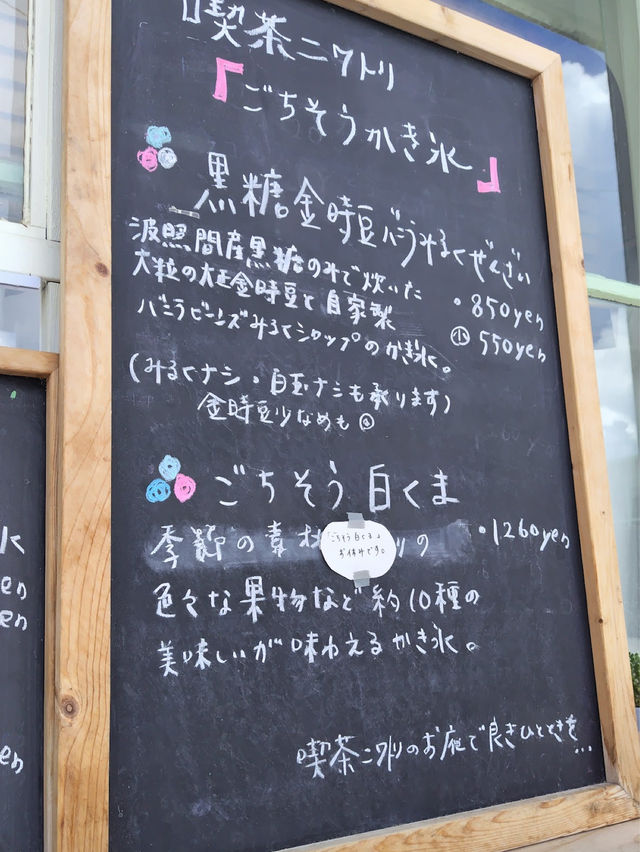 喫茶ニワトリ
『ごちそうかき氷』
黒糖金時豆バニラみるくぜんざい
波照間産黒糖のみで炊いた
大粒の大正金時豆と自家製
バニラビーンズみるくシロップのかき氷。
・850yen
小 550yen
(みるくナシ・白玉ナシも承ります)
金時豆少なめも
ごちそう白くま
季節の素材 の
・1260yen
「ごちそう白くま」
お休みです。
色々な果物など約10種の
美味しいが味わえるかき氷。
喫茶ニワトリのお庭で良きひとときを…
K
en
en
en